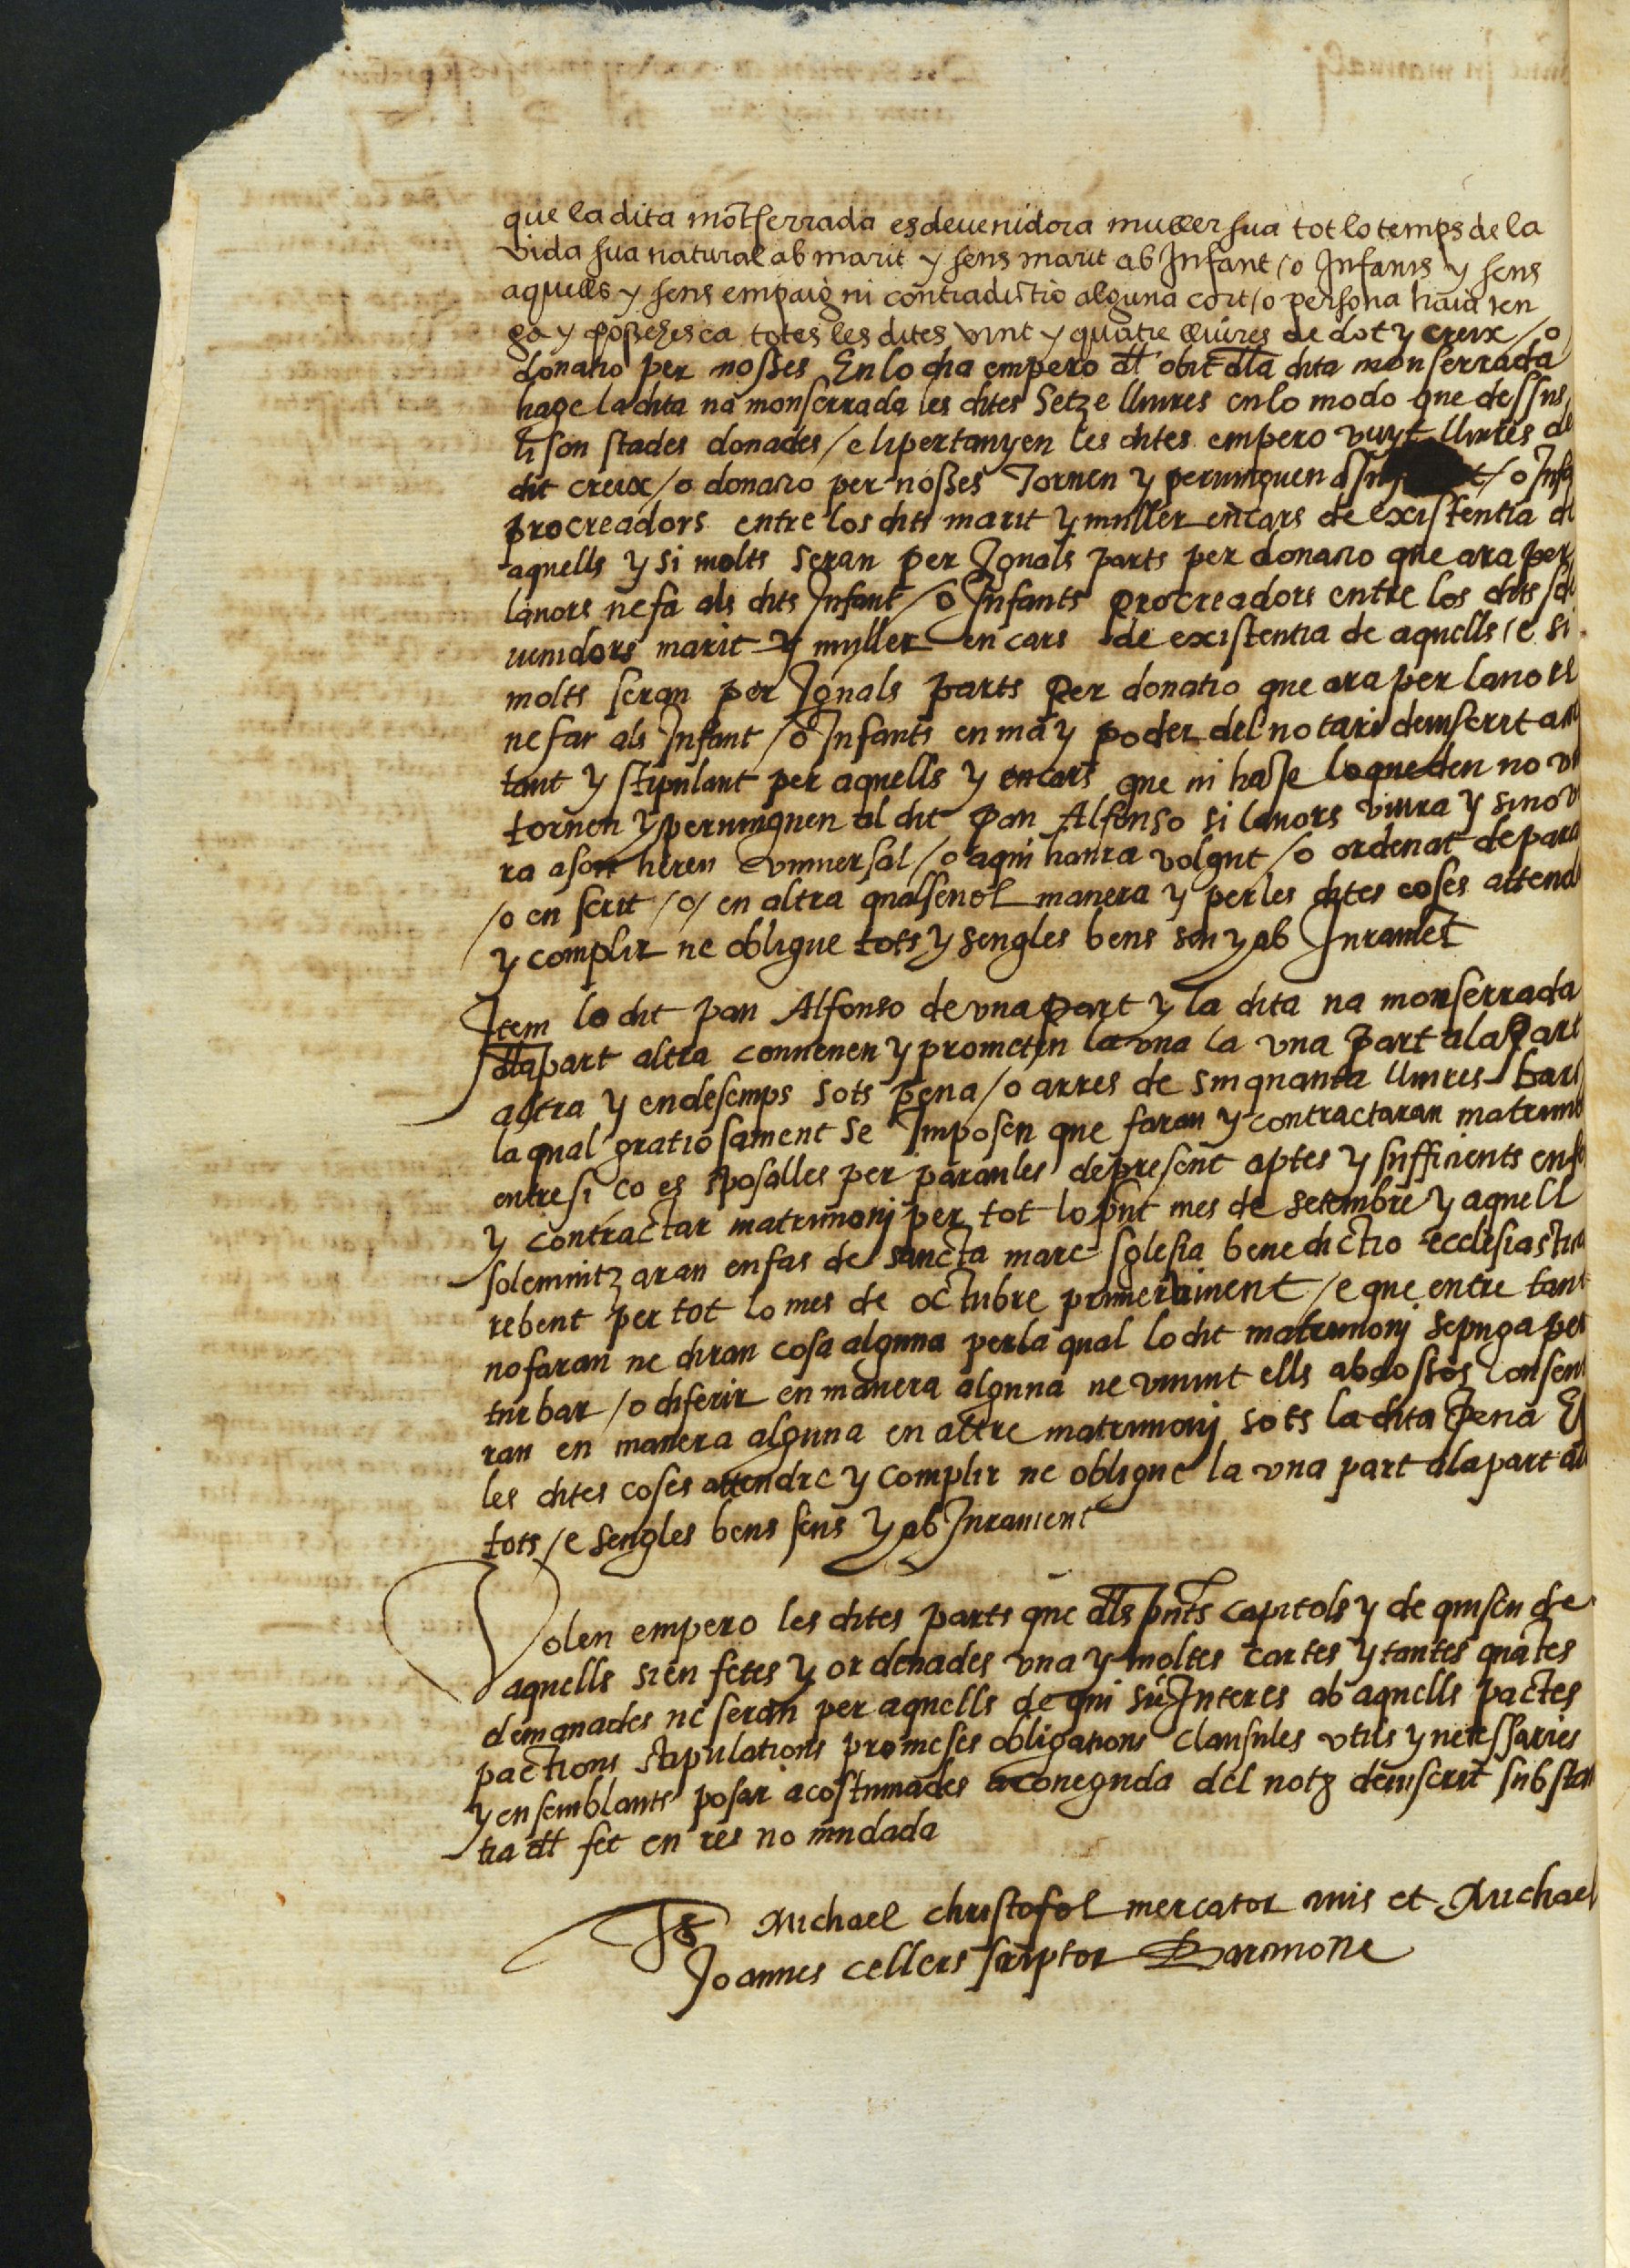 que la dita mõtserrada esdevenidora muller sua tot lo temps de la
vida sua natural ab marit y sens marit ab Infant / o Infants y sens
aquells y sens empaig ni contradictio alguna cort / o persona haia ten
ga y possehesca totes les dites vint y quatre lliures de dot y creix / o
donatio per nosses En lo dia empero dl obit dla dita monserrada
hage la dita na monserrada les dites Setze lliures en lo modo que dessus
li son stades donades / e li pertanyen les dites empero vuyt lliures de
dit creix / o donatio per nosses Tornen y pervinguen / o Infa
procreadors entre los dits marit y muller en cars de existentia de
aquells y si molts seran per Iguals parts per donatio que ara per
lavors ne fa als dits Infant / o Infants procreadors entre los dits sde
venidors marit y muller en cars de existentia de aquells / e si
molts seran per Iguals parts per donatio que ara per lavors
ne far als Infant / o Infants en ma y poder del notari devuscrit ac
tant y stipulant per aquells y encars que ni hage lo que den no vi
tornen y pervinguen al dit pau Alfonso si lavors viura y si no viu
ra a son hereu vniuersal / o a qui haura volgut / o ordenat de para
/ o en scrit / o / en altra qualsevol manera y per les dites coses attend
y complir ne obligue tots y sengles bens seu y ab Iuramẽt
Item lo dit pau Alfonso de vna part y la dita na monserrada
dla part altra convenen y prometen la vna la vna part a la part
altra y endesemps sots pena / o arres de sinquanta lliures bar
la qual gratiosament se Imposen que faran y contractaran matrimo
entre si ço es sposalles per paraules de present aptes y sufficients en fe
y contractar matrimonj per tot lo pñt mes de setembre y aquell
solemnitzaran en fas de sancta mare sglesia benedictio ecclesiastica
rebent per tot lo mes de octubre primerament / e que entre tant
no faran ne diran cosa alguna per la qual lo dit matrimonj se puga per
turbar / o diferir en manera alguna ne vivint ells abdossos consen
ran en manera alguna en altre matrimonj sots la dita Pena E
les dites coses attendre y complir ne obligue la vna part a la part al
tots / e sengles bens seus y ab Iurament
Volen empero les dites parts que dls pñts capitols y de quiscu de
aquells sien fetes y ordenades vna y moltes cartes y tantes quãtes
demanades ne seran per aquells de qui siẽ Interes ab aquells pactes
pactions stapulations promeses obligations clausules vtils y necessaries
y en semblants posar acostumades a coneguda del notz devuscrit substa
tia dl fet en res no mudada
Ts Michael christofol mercator civis et Michael
Joannes cellers scriptor Barcinone